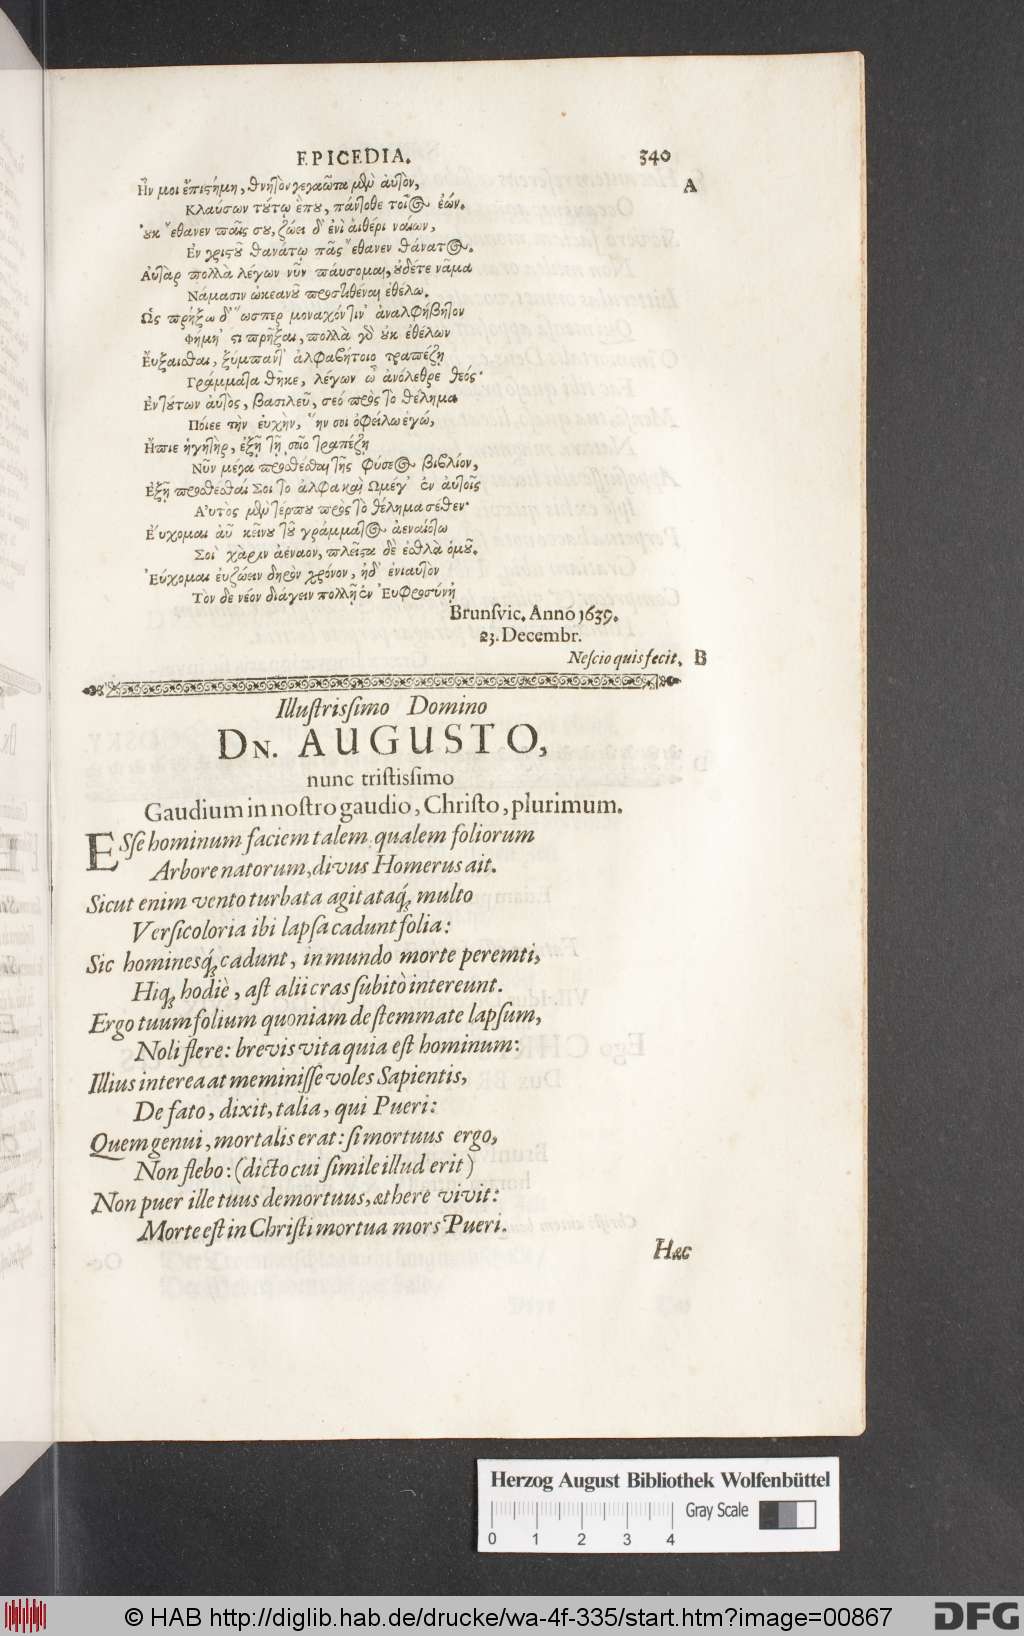 EPICEDIA. 340
Ἦν μοι ἔπιστήμη, θνητὸν γεγαῶτα μὲν αὐτὸν, A
Κλαύσων τύτῳ ἔπου, πάντοθε τοῖος ἐών.
Ὀυκ ἔθανεν παῖς σου, ζώει δ' ἐνὶ ἀιθέρι ναίων,
Ἐν χριστοῦ θανάτῳ πᾶς ἔθανεν θάνατος.
Αὐτὰρ πολλὰ λέγων νῦν πάυσομαι, ὐδέτε νᾶμα
Νάμασιν ὠκεανοῦ προστιθέναι ἐθέλω.
Ὡς πρήξω δ' ὥσπερ μοναχόν τιν' ἀναλφήβητον
Φήμη' στι πρῆξαι, πολλὰ γὸ ὐκ ἐθέλων
Ἔυξαιοθαι, ξύμπαντ' ἀλφαβήτοιο τραπέζῃ
Γράμματα θῆκε, λέγων ὦ ἀνόλεθρε θεός·
Ἐν τύτων ἀυτὸς, βασιλεῦ, σεό πρὸς τὸ θέλημα
Πόιεε τὴν ἐυχὴν, ἥν σοι ὀφείλω ἐγώ,
Ἤπιε ἡγητὴρ, ἑξῆ τῇ σοῖο τραπέζῃ
Νῦν μέγα προθέοθαι τῆς φύσεος βιβλίον,
Ἑξῆ προθέοθαί Σοι τὸ ἀλφα καὶ Ωμέγ' ἐν ἀυτοῖς
Ἀυτὸς μὲν τέρπου πρὸς τὸ θέλημα σέθεν·
Ἐύχομαι ἀῦ κεῖνου τοῦ γράμματος ἀεναίοτω
Σοὶ χὰριν ἀέναον, πλεῖστα δὲ ἐοθλὰ ὁμοῦ.
Ἐύχομαι ἐυζώειν δηρὸν χρόνον, ἠδ' ἐνιαυτὸν
Τον δε νέον διάγειν πολλῇ ἐν Ἐυφροσύνῃ
Brunsvic. Anno 1639.
23. Decembr.
Nescio quis fecit. B
Illustrissimo Domino
DN. AUGUSTO,
nunc tristissimo
Gaudium in nostro gaudio, Christo, plurimum.
ESse hominum faciem talem qualem foliorum
Arbore natorum, divus Homerus ait.
Sicut enim vento turbata agitataq́; multo
Versicoloria ibi lapsa cadunt folia:
Sic hominesq́; cadunt, in mundo morte peremti,
Hiq; hodiè, ast alii cras subitò intereunt.
Ergo tuum folium quoniam de stemmate lapsum,
Noli flere: brevis vita quia est hominum:
Illius interea at meminisse voles Sapientis,
De fato, dixit, talia, qui Pueri:
Quem genui, mortalis erat: si mortuus ergo,
Non flebo: (dicto cui simile illud erit)
Non puer ille tuus demortuus, æthere vivit:
Morte est in Christi mortua mors Pueri.
Hæc
Herzog August Bibliothek Wolfenbüttel
Gray Scale
0 1 2 3 4
© HAB http://diglib.hab.de/drucke/wa-4f-335/start.htm?image=00867
DFG